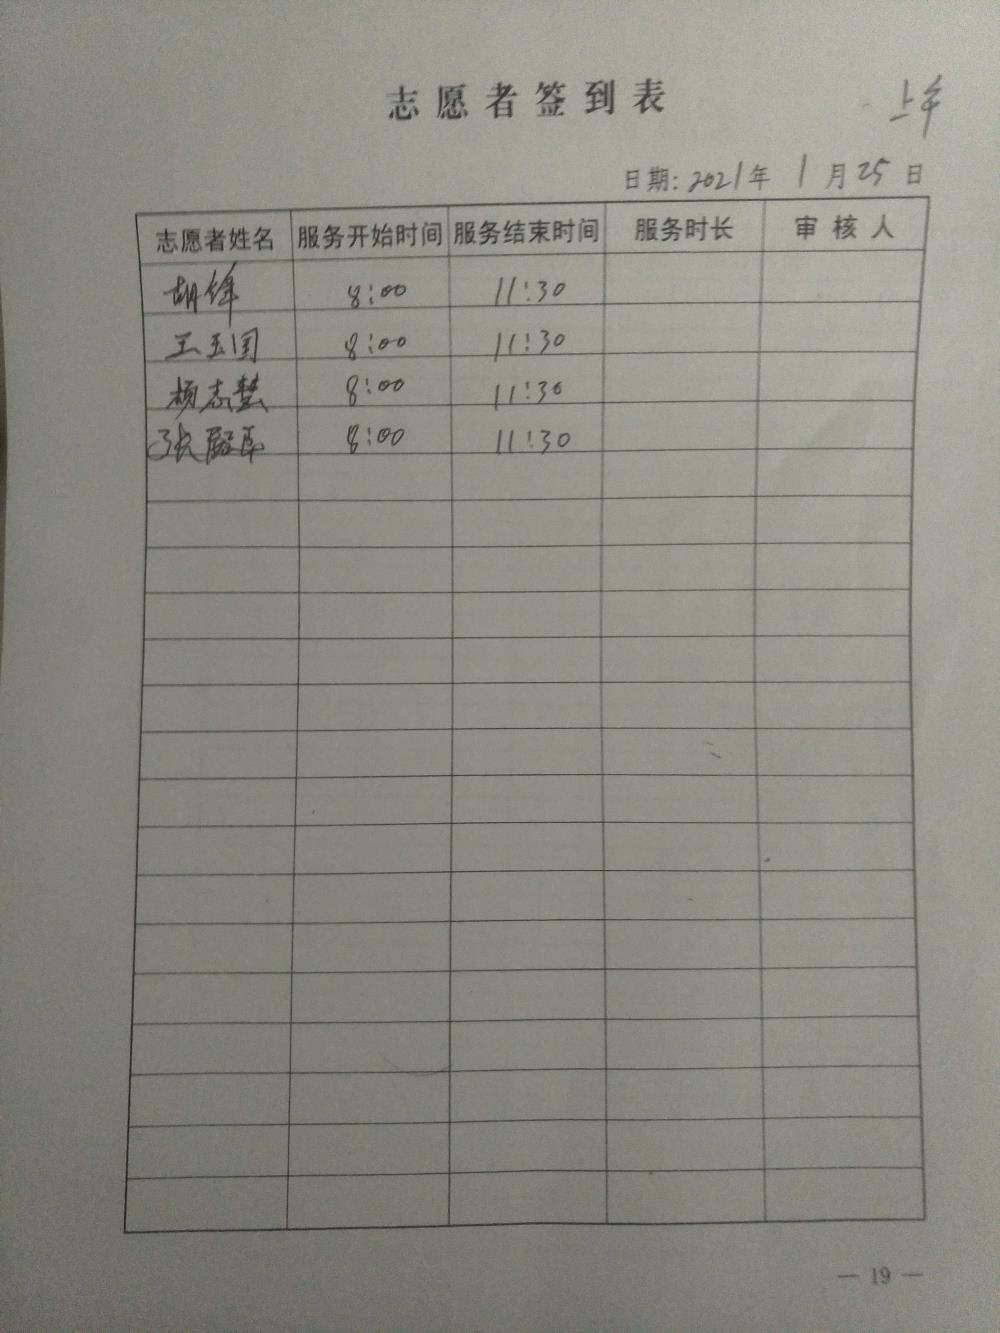 志愿者签到表
上午
日期: 2021年 1月25日
志愿者姓名 服务开始时间 服务结束时间 服务时长 审核人
胡锋 8:00 11:30
王玉国 8:00 11:30
杨志慧 8:00 11:30
张殿 8:00 11:30
— 19 —